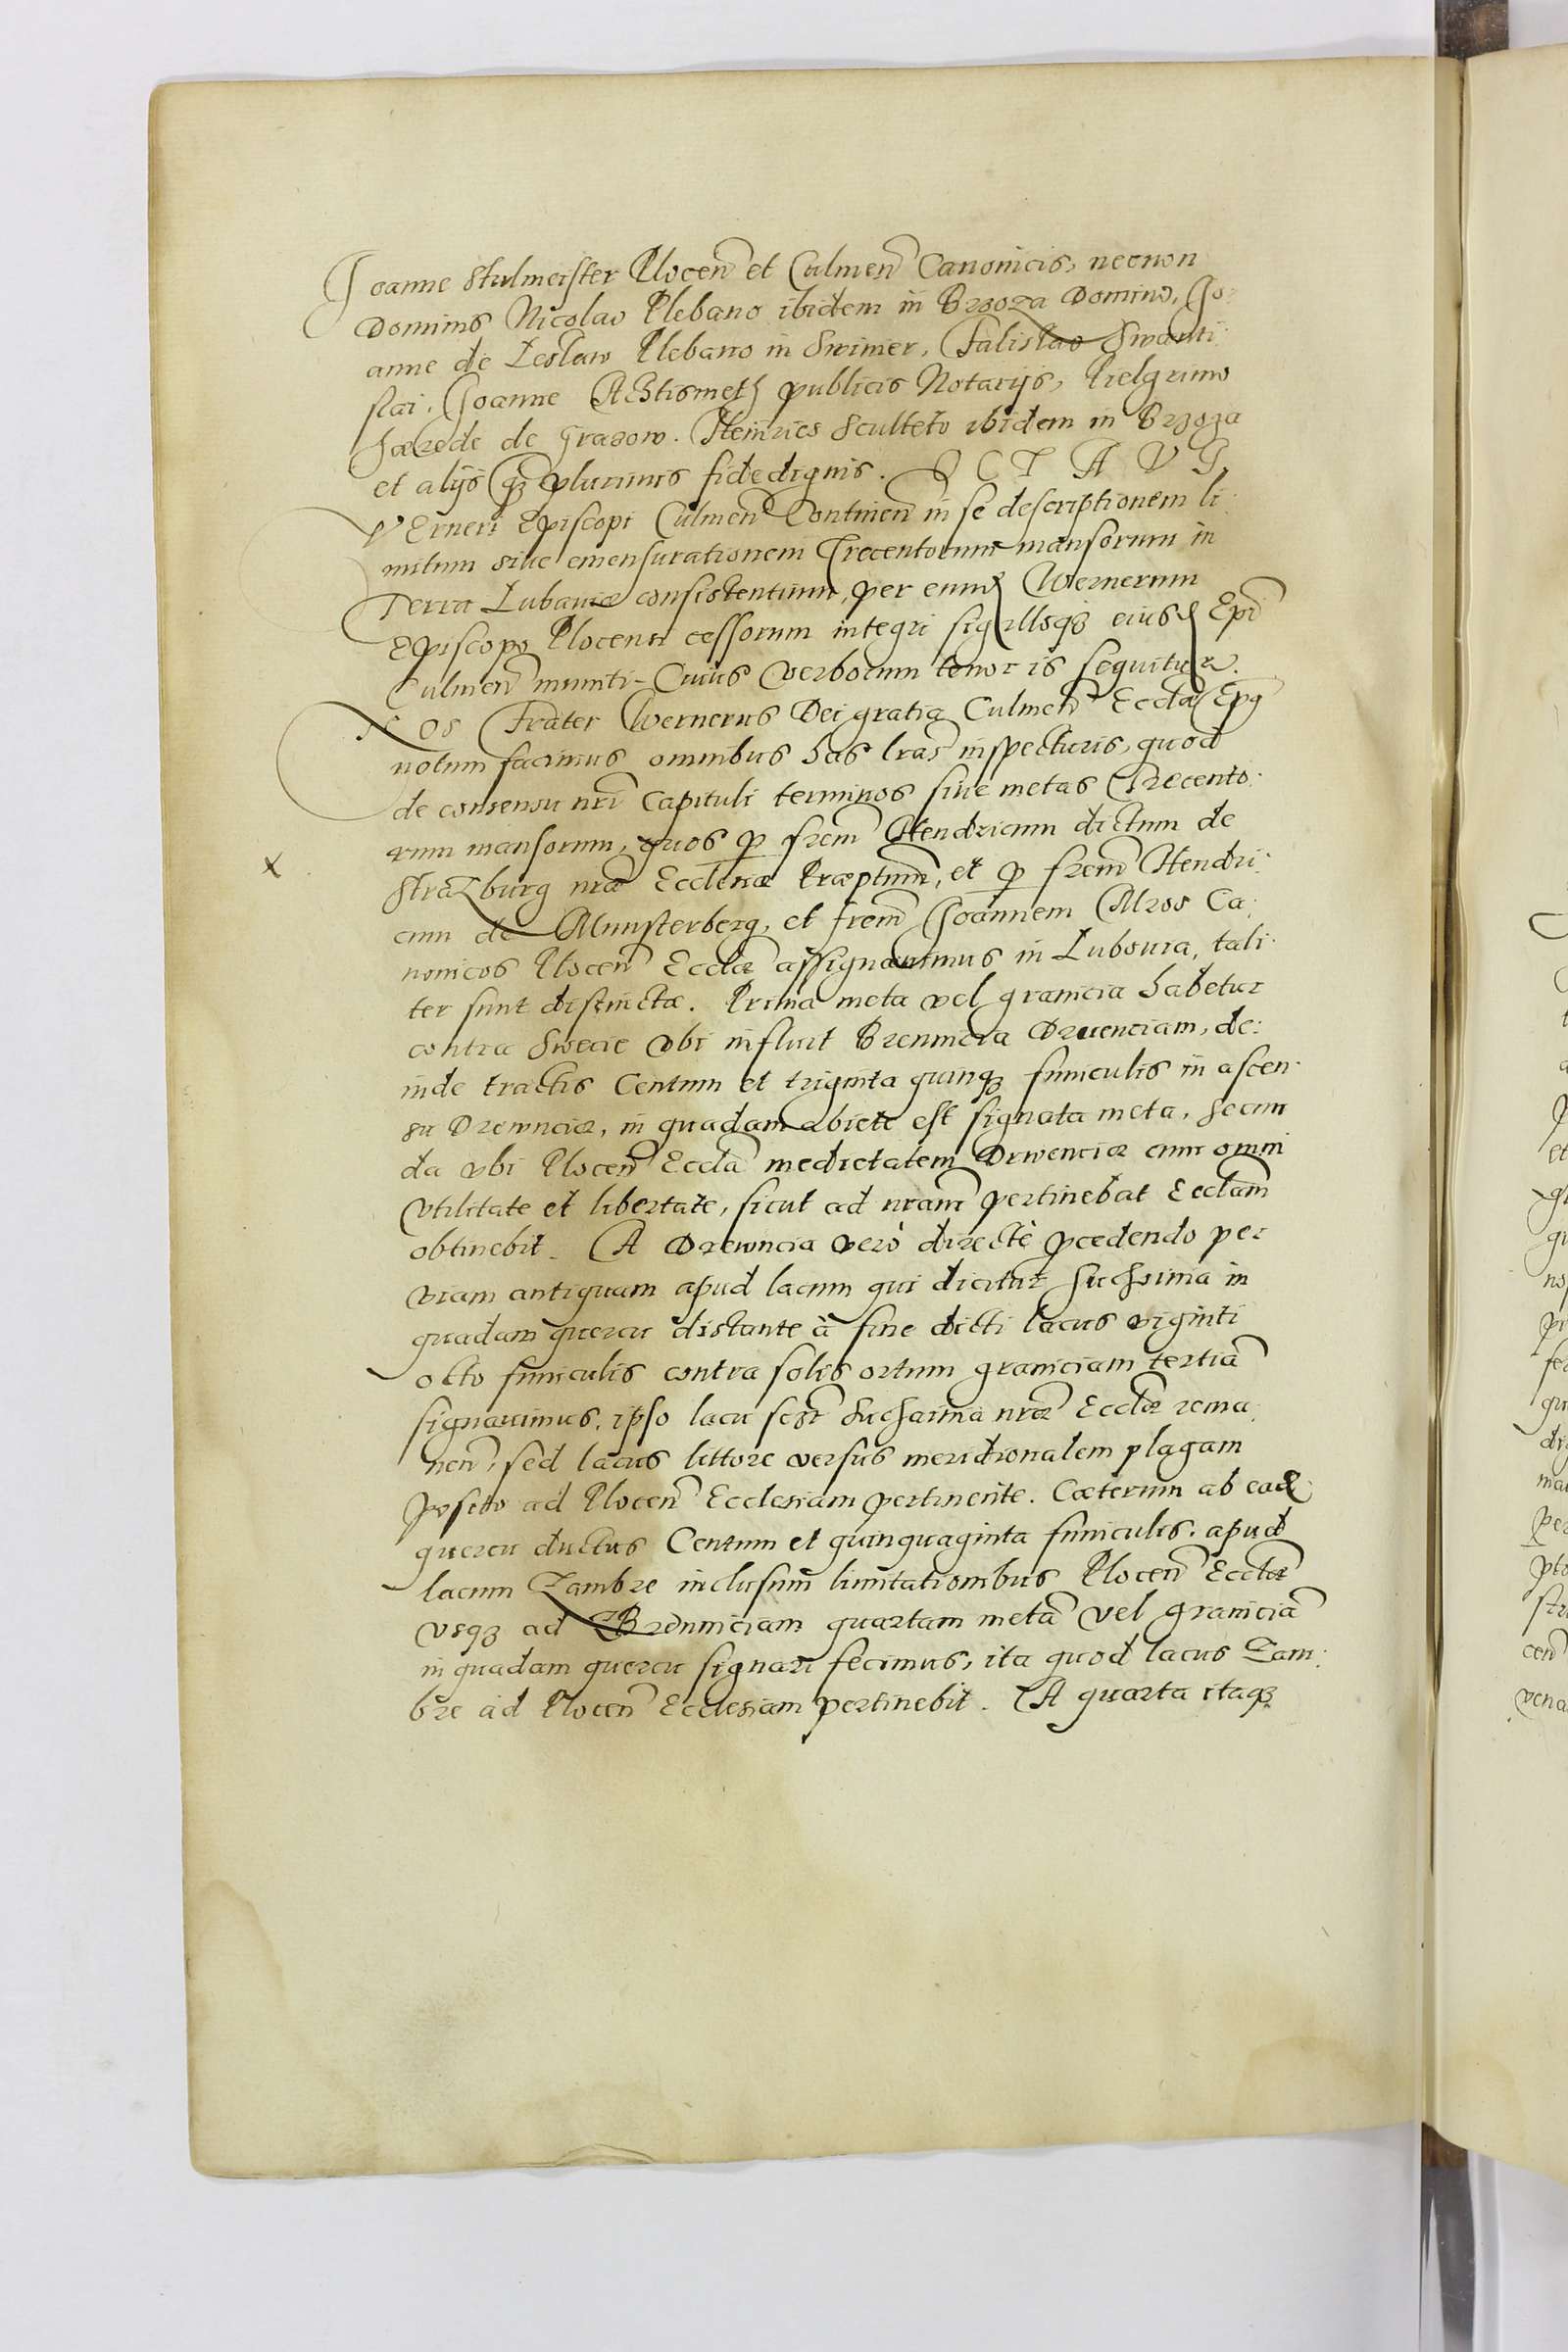 Joanne Stulmeister Plocen et Culmen Canonicis, necnon
Dominis Nicolao Plebano ibidem in Brzoza Domino, Jo:
anne de Leslaw Plebano in Swinier, Falislao Swanti:
slai, Joanne publicis Notarijs, Pielgrimo
hærede de Grazow. Heinrico Sculteto ibidem in Brzoza
et alijs q3 plurimis fidedignis.
VErneri Episcopi Culmen Continen in se descriptionem li:
mitum siue emensurationem Trecentorum mansorum in
Terra Lubauiæ consistentium, per eund Wernerum
Episcopo Plocensi cessorum integri sigillisq3 eiusd Epi
Culmen muniti. Cuius verborum tenor is sequitur.
NOS Frater Wernerus Dei gratia Culmen Eccla Epg
notum facimus omnibus has lras inspecturis, quod
de consensu nri Capituli terminos siue metas Trecento:
rum mansorum, quos p frem Hendricum dictum de
Strazburg nræ Ecclesiæ Præptum, et p frem Hendri:
cum de Munsterberg, et frem Joannem Mros Ca:
nonicos Plocen Ecclæ assignauimus in Luboura, tali:
ter sunt distinctæ. Prima meta vel granicia habetur
contra Swecie vbi influit Brennicia Druenciam, de:
inde tractis Centum et triginta quinq3 funiculis in ascen:
su Drewnciæ, in quadam abiete est signata meta, Secun
da vbi Plocen Eccla medietatem Drwenciæ cum omni
vtilitate et libertate, sicut ad nram pertinebat Ecclam
obtinebit. A Drewncia verò directè pcedendo per
viam antiquam apud lacum qui dicitur Suchsinia in
quadam quercu distante à fine dicti lacus viginti
octo funiculis contra solis ortum graniciam tertiã
signauimus, ipso lacu Suchainia nræ Ecclæ rema:
nen, sed lacus littore versus meridionalem plagam
posito ad Plocen Ecclesiam pertinente. Cæterum ab ead
quercu ductus Centum et quinquaginta funiculis, apud
lacum Zambre inclusum limitationibus Plocen Ecclæ
vsq3 ad Brenniciam quartam metã vel graniciã
in quadam quercu signari fecimus, ita quod lacus Zam:
bre ad Plocen Ecclesiam pertinebit. A quarta itaq3